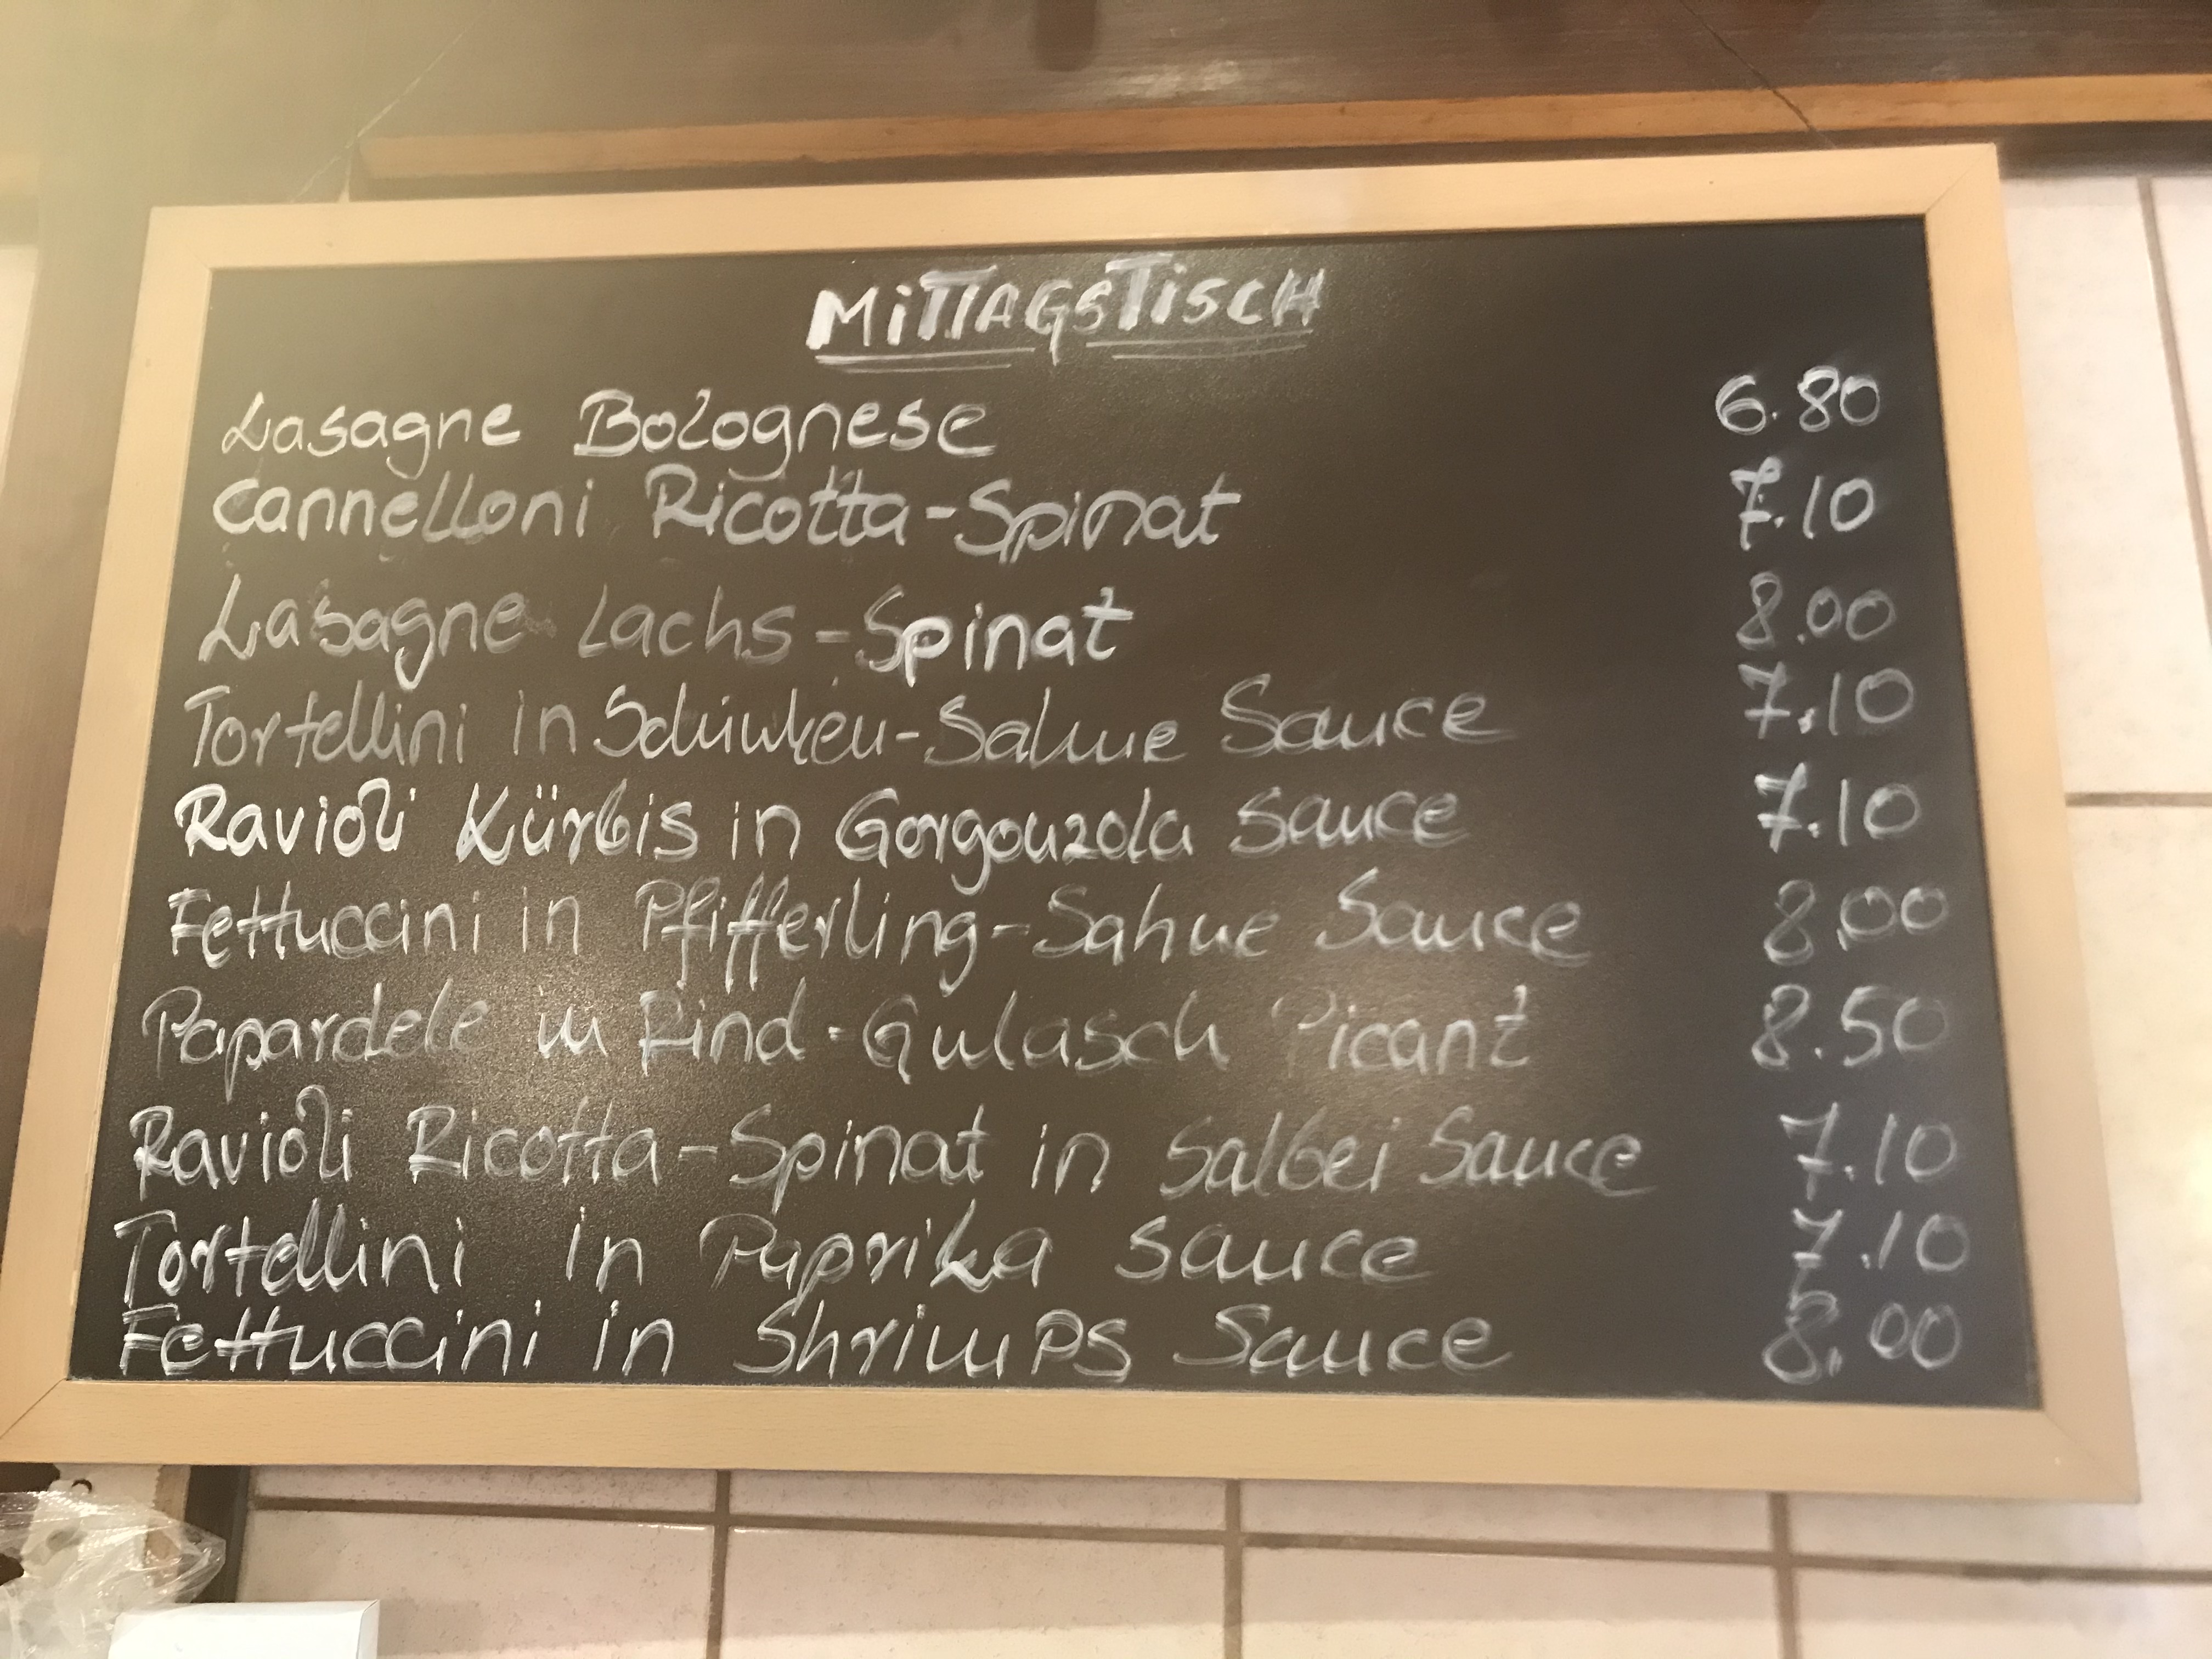 MITTAGSTISCH
Lasagne Bolognese 6.80
Cannelloni Ricotta-Spinat 7.10
Lasagne Lachs-Spinat 8.00
Tortellini in Schinken-Sahne Sauce 7.10
Ravioli Kürbis in Gorgonzola Sauce 7.10
Fettuccini in Pfifferling-Sahne Sauce 8.00
Papardele in Rind-Gulasch Picant 8.50
Ravioli Ricotta-Spinat in Salbei Sauce 7.10
Tortellini in Paprika Sauce 7.10
Fettuccini in Shrimps Sauce 8.00